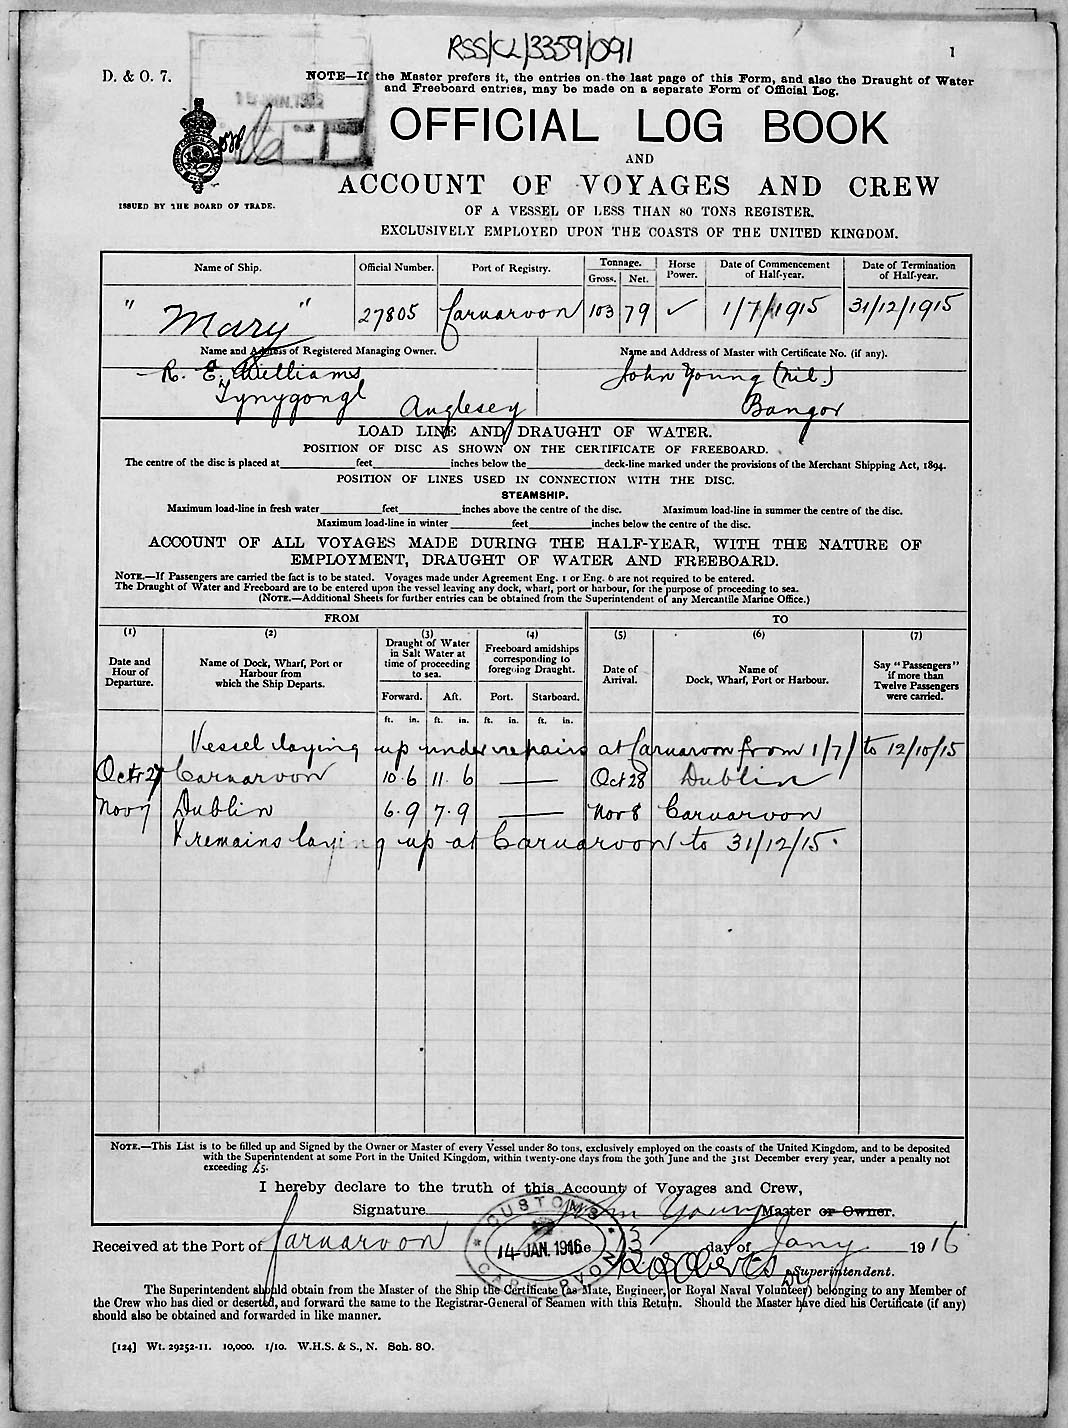 RSS/CL/3359/091
1
D. & O. 7.
NOTE—If the Master prefers it, the entries on the last page of this Form, and also the Draught of Water
and Freeboard entries, may be made on a separate Form of Official Log.
OFFICIAL LOG BOOK
AND
ACCOUNT OF VOYAGES AND CREW
ISSUED BY THE BOARD OF TRADE.
OF A VESSEL OF LESS THAN 80 TONS REGISTER.
EXCLUSIVELY EMPLOYED UPON THE COASTS OF THE UNITED KINGDOM.
Name of Ship. Official Number. Port of Registry. Tonnage. Gross. Net. Horse Power. Date of Commencement of Half-year. Date of Termination of Half-year.
"Mary" 27805 Carnarvon 103 79 ✓ 1/7/1915 31/12/1915
Name and Address of Registered Managing Owner. Name and Address of Master with Certificate No. (if any).
R. E. Williams John Young (Nil.)
Tynygongl Anglesey Bangor
LOAD LINE AND DRAUGHT OF WATER.
POSITION OF DISC AS SHOWN ON THE CERTIFICATE OF FREEBOARD.
The centre of the disc is placed at feet inches below the deck-line marked under the provisions of the Merchant Shipping Act, 1894.
POSITION OF LINES USED IN CONNECTION WITH THE DISC.
STEAMSHIP.
Maximum load-line in fresh water feet inches above the centre of the disc. Maximum load-line in summer the centre of the disc.
Maximum load-line in winter feet inches below the centre of the disc.
ACCOUNT OF ALL VOYAGES MADE DURING THE HALF-YEAR, WITH THE NATURE OF
EMPLOYMENT, DRAUGHT OF WATER AND FREEBOARD.
NOTE.—If Passengers are carried the fact is to be stated. Voyages made under Agreement Eng. 1 or Eng. 6 are not required to be entered.
The Draught of Water and Freeboard are to be entered upon the vessel leaving any dock, wharf, port or harbour, for the purpose of proceeding to sea.
(NOTE.—Additional Sheets for further entries can be obtained from the Superintendent of any Mercantile Marine Office.)
FROM TO
(1) (2) (3) (4) (5) (6) (7)
Date and Hour of Departure. Name of Dock, Wharf, Port or Harbour from which the Ship Departs. Draught of Water in Salt Water at time of proceeding to sea. Freeboard amidships corresponding to foregoing Draught. Date of Arrival. Name of Dock, Wharf, Port or Harbour. Say "Passengers" if more than Twelve Passengers were carried.
Forward. Aft. Port. Starboard.
ft. in. ft. in. ft. in. ft. in.
Vessel laying up under repairs at Carnarvon from 1/7/ to 12/10/15
Octr 27 Carnarvon 10.6 11.6 — Oct 28 Dublin
Nov 7 Dublin 6.9 7.9 — Nov 8 Carnarvon
& remains laying up at Carnarvon to 31/12/15.
NOTE.—This List is to be filled up and Signed by the Owner or Master of every Vessel under 80 tons, exclusively employed on the coasts of the United Kingdom, and to be deposited
with the Superintendent at some Port in the United Kingdom, within twenty-one days from the 30th June and the 31st December every year, under a penalty not
exceeding £5.
I hereby declare to the truth of this Account of Voyages and Crew,
Signature John Young Master or Owner.
CUSTOMS
14 JAN. 1916
CARNARVON
Received at the Port of Carnarvon the 13 day of Jany 1916
Superintendent.
The Superintendent should obtain from the Master of the Ship the Certificate (as Mate, Engineer, or Royal Naval Volunteer) belonging to any Member of
the Crew who has died or deserted, and forward the same to the Registrar-General of Seamen with this Return. Should the Master have died his Certificate (if any)
should also be obtained and forwarded in like manner.
[124] Wt. 29252-11. 10,000. 1/10. W.H.S. & S., N. Sch. 80.